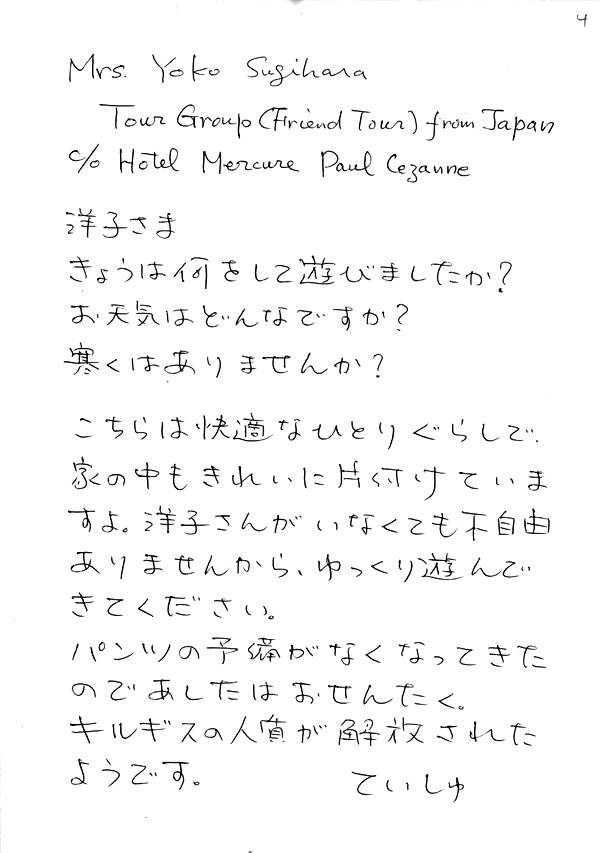 4
Mrs. Yoko Sugihara
Tour Group (Friend Tour) from Japan
c/o Hotel Mercure Paul Cezanne
洋子さま
きょうは何をして遊びましたか?
お天気はどんなですか?
寒くはありませんか?
こちらは快適なひとりぐらしで、
家の中もきれいに片付けていま
すよ。洋子さんがいなくても不自由
ありませんから、ゆっくり遊んで
きてください。
パンツの予備がなくなってきた
のであしたはおせんたく。
キルギスの人質が解放された
ようです。
ていしゅ